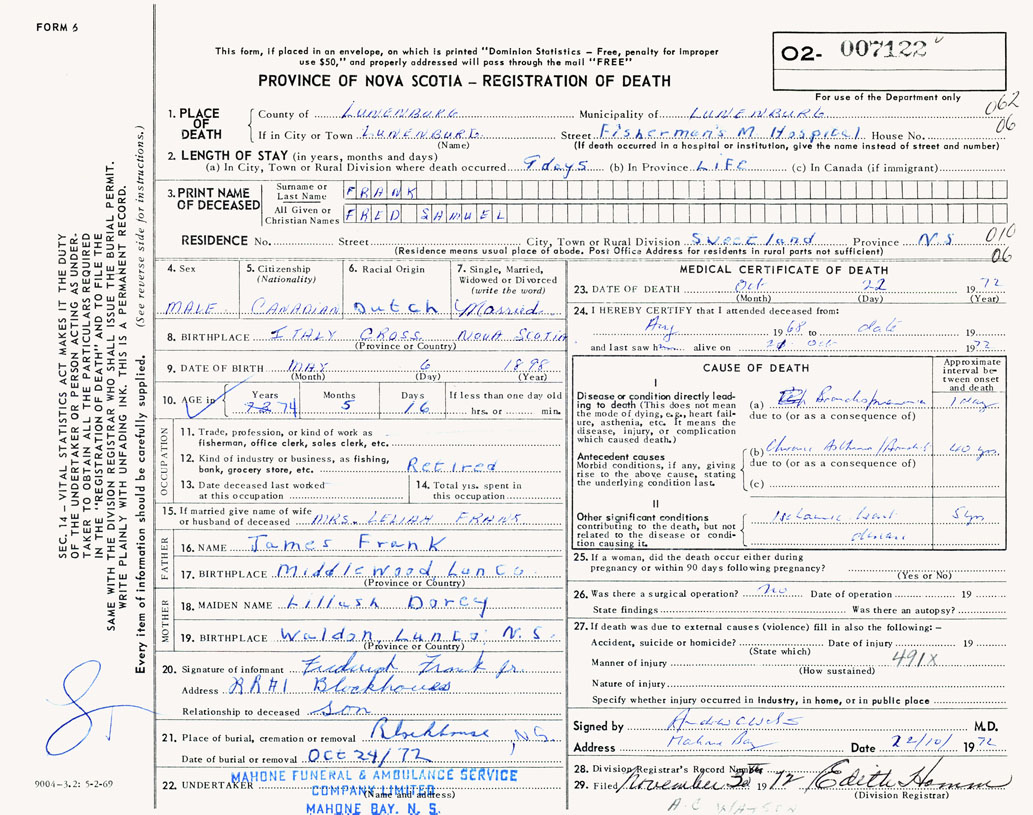 FORM 6
This form, if placed in an envelope, on which is printed "Dominion Statistics – Free, penalty for improper
use $50," and properly addressed will pass through the mail "FREE"
PROVINCE OF NOVA SCOTIA – REGISTRATION OF DEATH
O2- 007122
For use of the Department only
062
06
1. PLACE OF DEATH
County of LUNENBURG Municipality of LUNENBURG
If in City or Town LUNENBURG Street Fisherman's M Hospital House No.
(Name) (If death occurred in a hospital or institution, give the name instead of street and number)
2. LENGTH OF STAY (in years, months and days)
(a) In City, Town or Rural Division where death occurred 9 days (b) In Province LIFE (c) In Canada (if immigrant)
3. PRINT NAME OF DECEASED
Surname or Last Name FRANK
All Given or Christian Names FRED SAMUEL
RESIDENCE No. Street City, Town or Rural Division Sweetland Province N.S
010
06
(Residence means usual place of abode. Post Office Address for residents in rural parts not sufficient)
4. Sex
MALE
5. Citizenship
(Nationality)
CANADIAN
6. Racial Origin
Dutch
7. Single, Married,
Widowed or Divorced
(write the word)
Married
8. BIRTHPLACE ITALY CROSS NOVA SCOTIA
(Province or Country)
9. DATE OF BIRTH MAY 6 1898
(Month) (Day) (Year)
10. AGE in
Years Months Days If less than one day old
74 5 16 hrs. or min.
OCCUPATION
11. Trade, profession, or kind of work as
fisherman, office clerk, sales clerk, etc.
12. Kind of industry or business, as fishing,
bank, grocery store, etc. Retired
13. Date deceased last worked
at this occupation
14. Total yrs. spent in
this occupation
15. If married give name of wife
or husband of deceased MRS. LELIAH FRANK
FATHER
16. NAME James Frank
17. BIRTHPLACE Middlewood, Lun Co
(Province or Country)
MOTHER
18. MAIDEN NAME Lillush Dorey
19. BIRTHPLACE Waldon, Lun Co. N.S.
(Province or Country)
20. Signature of informant Frank jr.
Address RR#1 Blockhouse
Relationship to deceased Son
21. Place of burial, cremation or removal Blockhouse N.S.
Date of burial or removal OCT 24/72
22. UNDERTAKER
(Name and address)
MAHONE FUNERAL & AMBULANCE SERVICE
COMPANY LIMITED
MAHONE BAY, N. S.
MEDICAL CERTIFICATE OF DEATH
23. DATE OF DEATH Oct 22 1972
(Month) (Day) (Year)
24. I HEREBY CERTIFY that I attended deceased from:
Aug 1968 to date 19
and last saw him alive on Oct 1972
CAUSE OF DEATH
Approximate
interval be-
tween onset
and death
I
Disease or condition directly lead-
ing to death (This does not mean
the mode of dying, e.g., heart fail-
ure, asthenia, etc. It means the
disease, injury, or complication
which caused death.)
(a) Bronchopneumonia 1 day
due to (or as a consequence of)
Antecedent causes
Morbid conditions, if any, giving
rise to the above cause, stating
the underlying condition last.
(b) Chronic Asthma / 40 yrs.
due to (or as a consequence of)
(c)
II
Other significant conditions
contributing to the death, but not
related to the disease or condi-
tion causing it.
Ischaemic heart 5 yrs
disease
25. If a woman, did the death occur either during
pregnancy or within 90 days following pregnancy?
(Yes or No)
26. Was there a surgical operation? No Date of operation 19
State findings Was there an autopsy?
27. If death was due to external causes (violence) fill in also the following: –
Accident, suicide or homicide? Date of injury 19
(State which)
Manner of injury
(How sustained)
491X
Nature of injury
Specify whether injury occurred in industry, in home, or in public place
Signed by M.D.
Address Mahone Bay Date 22/10/ 1972
28. Division Registrar's Record Number
29. Filed November 30 1972 Edith Hamm
(Division Registrar)
A-C WATSON
9004-3.2: 5-2-69
SEC. 14 – VITAL STATISTICS ACT MAKES IT THE DUTY
OF THE UNDERTAKER OR PERSON ACTING AS UNDER-
TAKER TO OBTAIN ALL THE PARTICULARS REQUIRED
IN THE "REGISTRATION OF DEATH" AND TO FILE THE
SAME WITH THE DIVISION REGISTRAR WHO SHALL ISSUE THE BURIAL PERMIT.
WRITE PLAINLY WITH UNFADING INK. THIS IS A PERMANENT RECORD.
Every item of information should be carefully supplied. (See reverse side for instructions.)